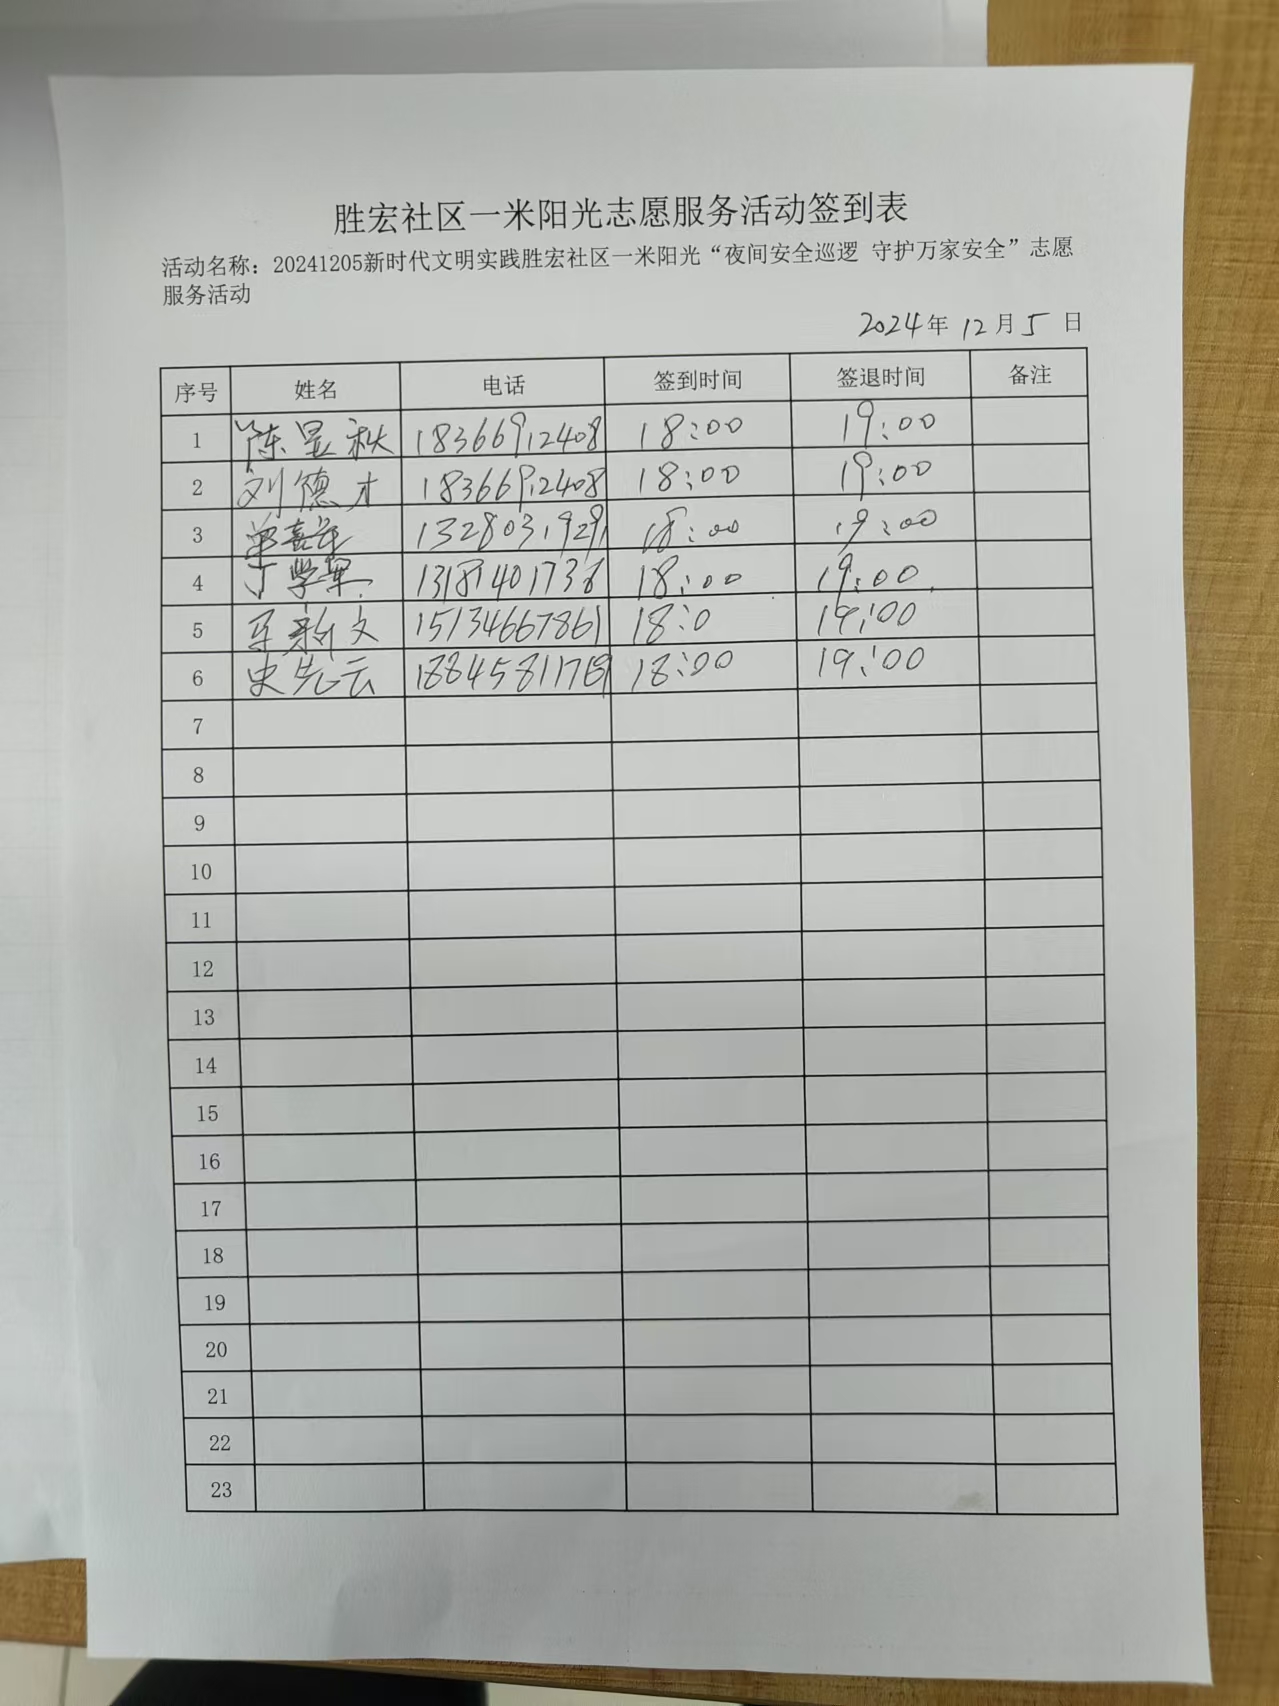 胜宏社区一米阳光志愿服务活动签到表
活动名称：20241205新时代文明实践胜宏社区一米阳光“夜间安全巡逻 守护万家安全”志愿
服务活动
2024年 12月 5 日
序号 姓名 电话 签到时间 签退时间 备注
1 陈昱秋 18366912408 18:00 19:00
2 刘德才 18366912408 18:00 19:00
3 13280319291 18:00 19:00
4 丁学军 13181401738 18:00 19:00
5 文 15134667861 18:0 19:00
6 史先云 18:00 19:00
7
8
9
10
11
12
13
14
15
16
17
18
19
20
21
22
23